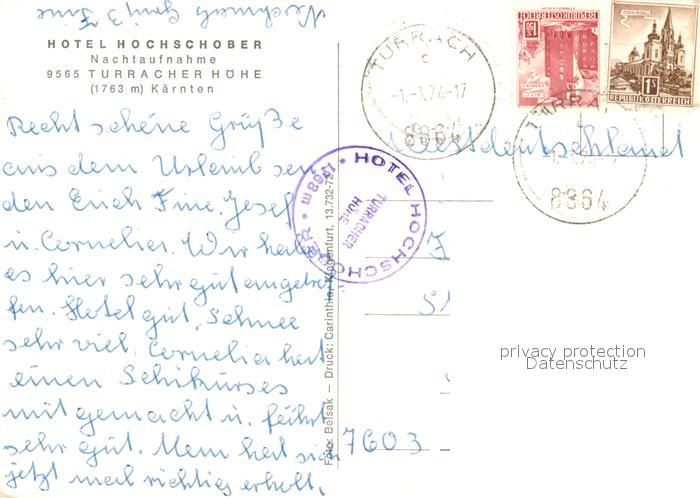 HOTEL HOCHSCHOBER
Nachtaufnahme
9565 TURRACHER HÖHE
(1763 m) Kärnten
Recht schöne Grüße
aus dem Urlaub sen
den Euch Fine, Josef
u. Cornelia. Wir haben
es hier sehr gut angetrof
fen. Hotel gut, Schnee
sehr viel. Cornelia hat
einen Schikurses
mit gemacht u. fährt
sehr gut. Man hat sich
jetzt mal richtig erholt,
Foto: Belsak — Druck: Carinthia, Klagenfurt, 13.732-72
TURRACH
c
-1.-3.74-17
8864
REPUBLIK ÖSTERREICH
1.50
1 S
REPUBLIK ÖSTERREICH
TURRA
8864
HOTEL HOCHSCHOBER · 1768 m ·
TURRACHER
HÖHE
Westdeutschland
7603
privacy protection
Datenschutz